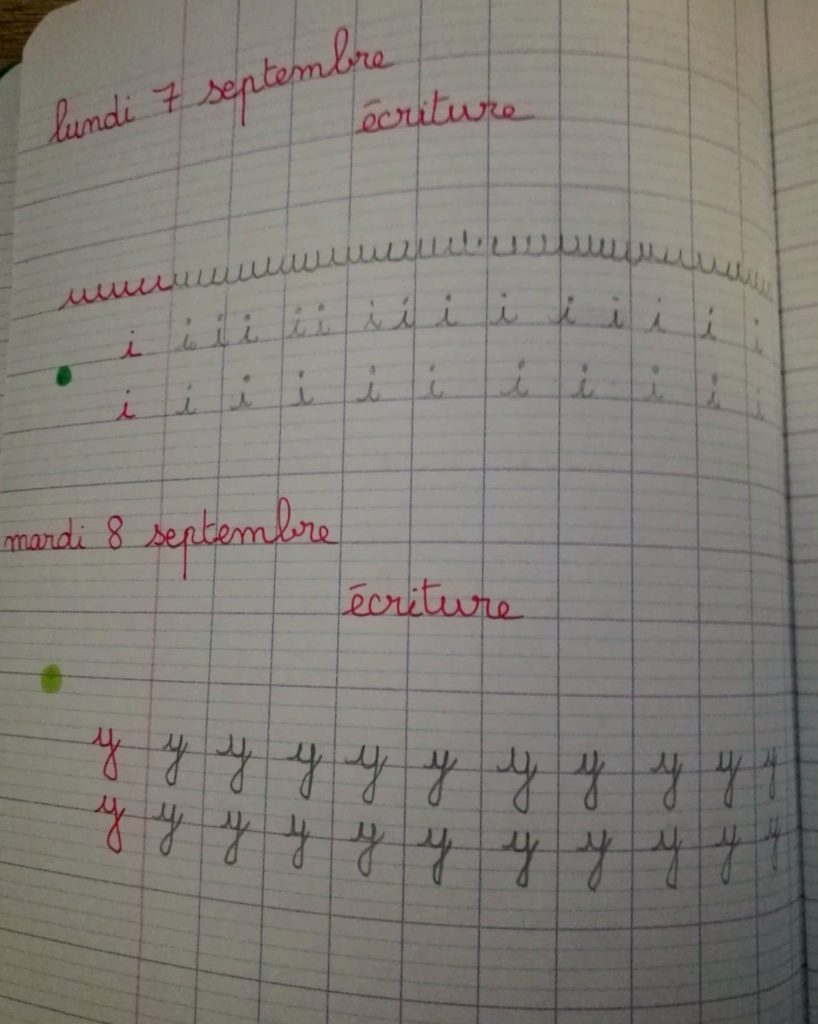 lundi 7 septembre
écriture
i i i i i i i i i i i i i i i
i i i i i i i i i i i
mardi 8 septembre
écriture
y y y y y y y y y y y
y y y y y y y y y y y